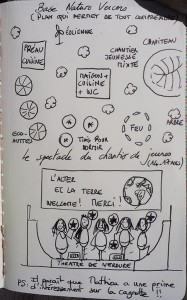 Base Nature Vercors
(PLAN QUI PERMET DE TOUT COMPRENDRE)
ÉOLIENNE
CHAPITEAU
CHANTIER
JEUNESSE
MIXTE
PRÉAU
+
CUISINE
MAISON +
CUISINE
+ WC
ÉCO-
TIPIS POUR
DORMIR
FEU
ARBRE
le spectacle du chantier de jeunes
L'ALTER
ET LA TERRE
WELCOME! MERCI!
THÉATRE DE VERDURE
PS: Il paraît que Mathieu a une prime
d'intéressement sur la cagnotte !!